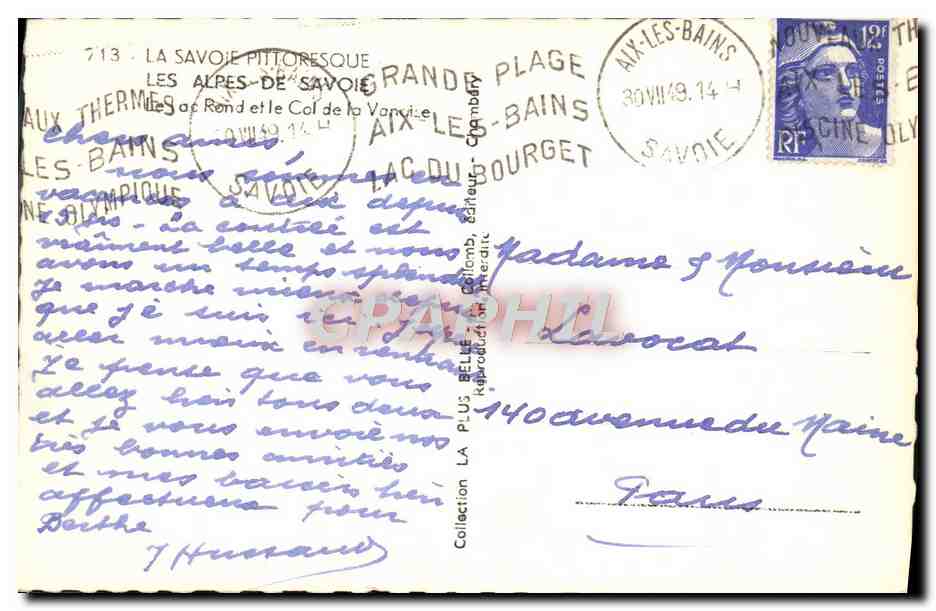 713 - LA SAVOIE PITTORESQUE
LES ALPES DE SAVOIE
Le Lac Rond et le Col de la Vanoise
AUX THERMES
LES-BAINS
NE OLYMPIQUE
30 VII 49. 14 H
SAVOIE
GRANDE PLAGE
AIX-LES-BAINS
LAC DU BOURGET
AIX-LES-BAINS
30 VII 49. 14 H
SAVOIE
NOUVEAUX TH
AIX-LES-B
PISCINE OLY
12F
POSTES
RF
Chers amis,
nous sommes en
vacances à Aix depuis
jours - La contrée est
vraiment belle et nous
avons un temps splendide
Je marche mieux depuis
que je suis ici. J'espère
aller mieux en rentrant
Je pense que vous
allez bien tous deux
et je vous envoie nos
très bonnes amitiés
et mes baisers bien
affectueux pour
Berthe
J Hussaud
Collection LA PLUS BELLE - Collomb, éditeur - Chambéry
Reproduction interdite
CPAPHIL
Madame & Monsieur
Lavocat
140 avenue du Maine
Paris